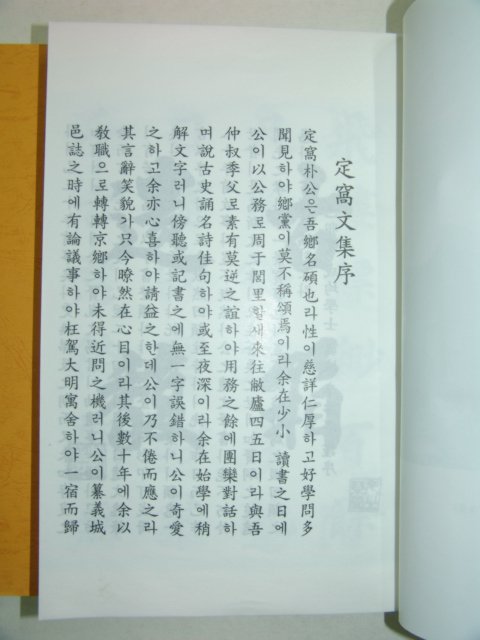 定窩文集序
定窩朴公은吾鄕名碩也라性이慈詳仁厚하고好學問多
聞見하야鄕黨이莫不稱頌焉이라余在少小 讀書之日에
公이以公務로周于閭里할새來往敝廬四五日이라與吾
仲叔季父로素有莫逆之誼하야用務之餘에團欒對話하
며說古史誦名詩佳句하야或至夜深이라余在始學에稍
解文字러니傍聽或記書之에無一字誤錯하니公이奇愛
之하고余亦心喜하야請益之한데公이乃不倦而應之라
其言辭笑貌가只今暸然在心目이라其後數十年에余以
敎職으로轉轉京鄕하야未得近問之機러니公이纂義城
邑誌之時에有論議事하야枉駕大明寓舍하야一宿而歸